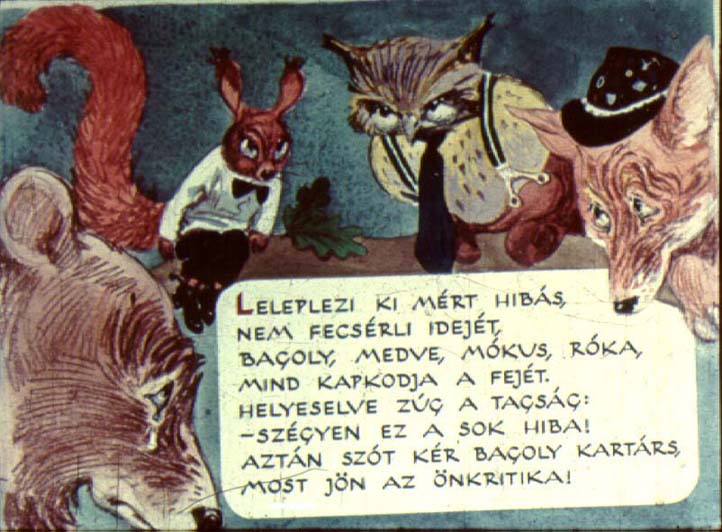 LELEPLEZI KI MÉRT HIBÁS,
NEM FECSÉRLI IDEJÉT,
BAGOLY, MEDVE, MÓKUS, RÓKA,
MIND KAPKODJA A FEJÉT.
HELYESELVE ZÚG A TAGSÁG:
–SZÉGYEN EZ A SOK HIBA!
AZTÁN SZÓT KÉR BAGOLY KARTÁRS,
MOST JÖN AZ ÖNKRITIKA!